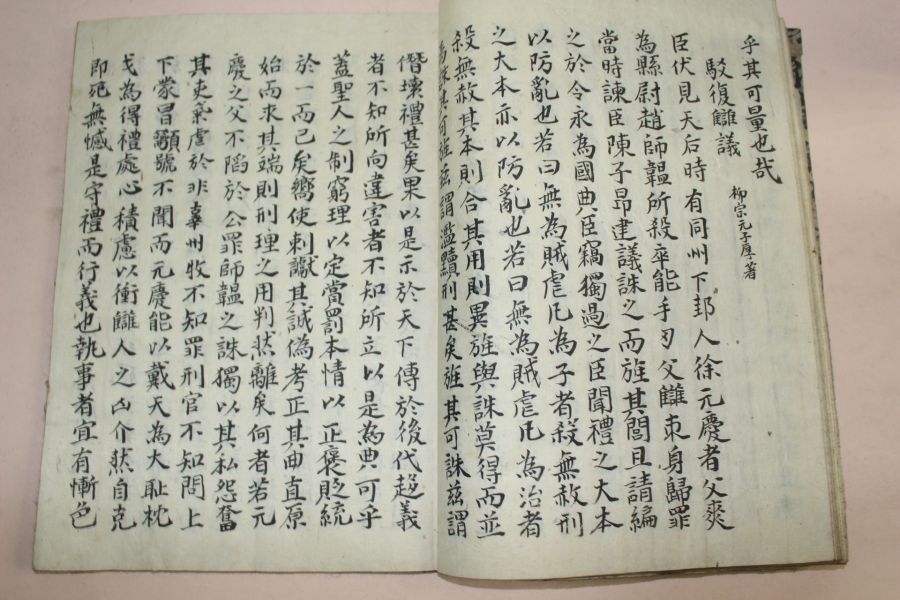 乎其可量也哉
駁復讎議
柳宗元子厚著
臣伏見天后時有同州下邽人徐元慶者父爽
為縣尉趙師韞所殺卒能手刃父讎束身歸罪
當時諫臣陳子昂建議誅之而旌其閭且請編
之於令永為國典臣竊獨過之臣聞禮之大本
以防亂也若曰無為賊虐凡為子者殺無赦刑
之大本亦以防亂也若曰無為賊虐凡為治者
殺無赦其本則合其用則異旌與誅莫得而並
焉誅其可旌茲謂濫黷刑甚矣旌其可誅茲謂
僭壞禮甚矣果以是示於天下傳於後代趨義
者不知所向違害者不知所立以是為典可乎
蓋聖人之制窮理以定賞罰本情以正褒貶統
於一而已矣嚮使刺讞其誠偽考正其曲直原
始而求其端則刑理之用判然離矣何者若元
慶之父不陷於公罪師韞之誅獨以其私怨奮
其吏氣虐於非辜州牧不知罪刑官不知問上
下蒙冒籲號不聞而元慶能以戴天為大恥枕
戈為得禮處心積慮以衝讎人之凶介然自克
即死無憾是守禮而行義也執事者宜有慚色